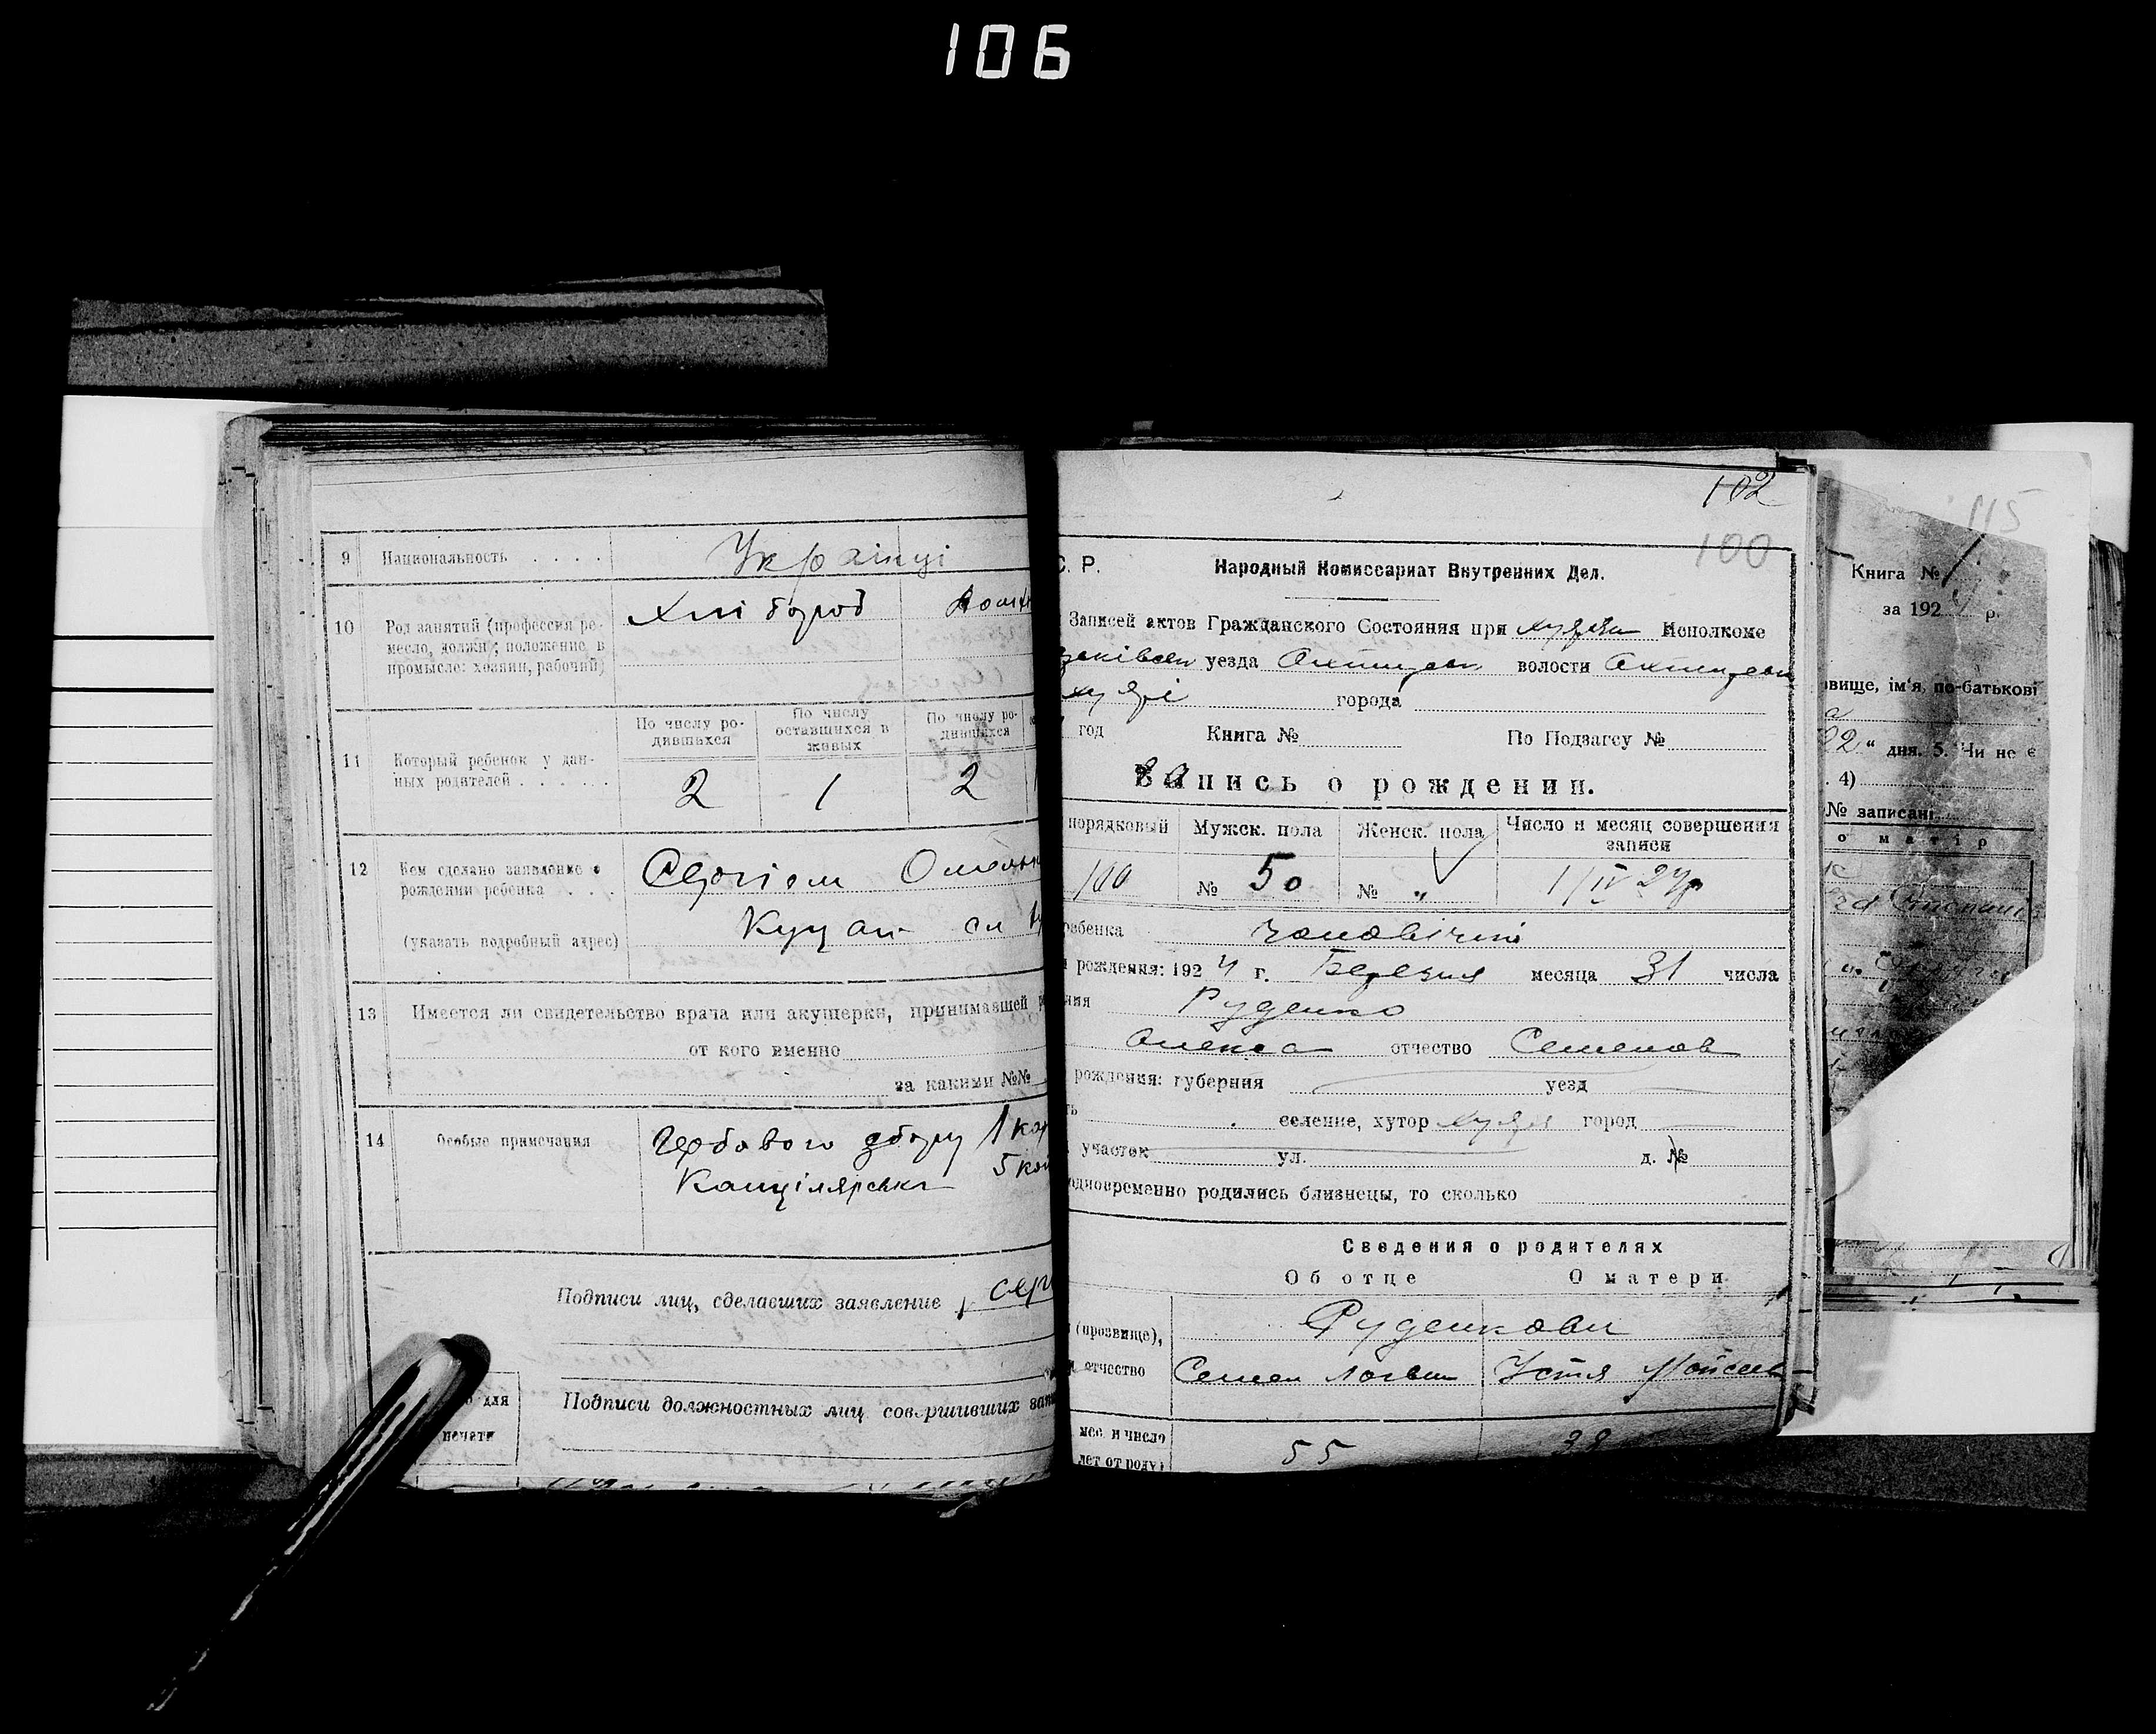 106
9 Национальность . . . . Українці
10 Род занятий (профессия ре-
месло, должн; положение в
промысле: хозяин, рабочий)
Хлібороб
11 Который ребенок у дан-
ных родителей . . . . . .
По числу ро-
дившихся
По числу
оставшихся в
живых
По числу ро-
дившихся
2 1 2
12 Кем сделано заявление о
рождении ребенка . . .
(указать подробный адрес)
Сергієм Омелян
Куцан
13 Имеется ли свидетельство врача или акушерки, принимавшей
от кого именно
за какими №№
14 Особые примечания
Гербового збору 1 кар
5 кой
Канцілярська
Подписи лиц, сделавших заявление Серг
Подписи должностных лиц совершивших зап
для
печати
102
100
С. Р. Народный Комиссариат Внутренних Дел.
Записей актов Гражданского Состояния при Исполкоме
уезда волости
города
год Книга № По Подзагсу №
Запись о рождении.
порядковый Мужск. пола Женск. пола Число и месяц совершения
записи
100 № 50 № „ 1/IV 24р
ребенка чоловічий
рождения: 1924 г. Березня месяца 31 числа
ния Руденко
Олекса отчество Семенов
рождения: губерния уезд
ть селение, хутор город
участок ул. д. №
одновременно родились близнецы, то сколько
Сведения о родителях
Об отце О матери
(прозвище), Руденкови
отчество Семен Логвин Устя Мойсеев
мес. и число
лет от роду) 55 38
115
Книга № 1
за 1924 р.
звище, ім'я, по-батькові
02 " дня. 5. Чи не є
. 4)
№ записані
о матір